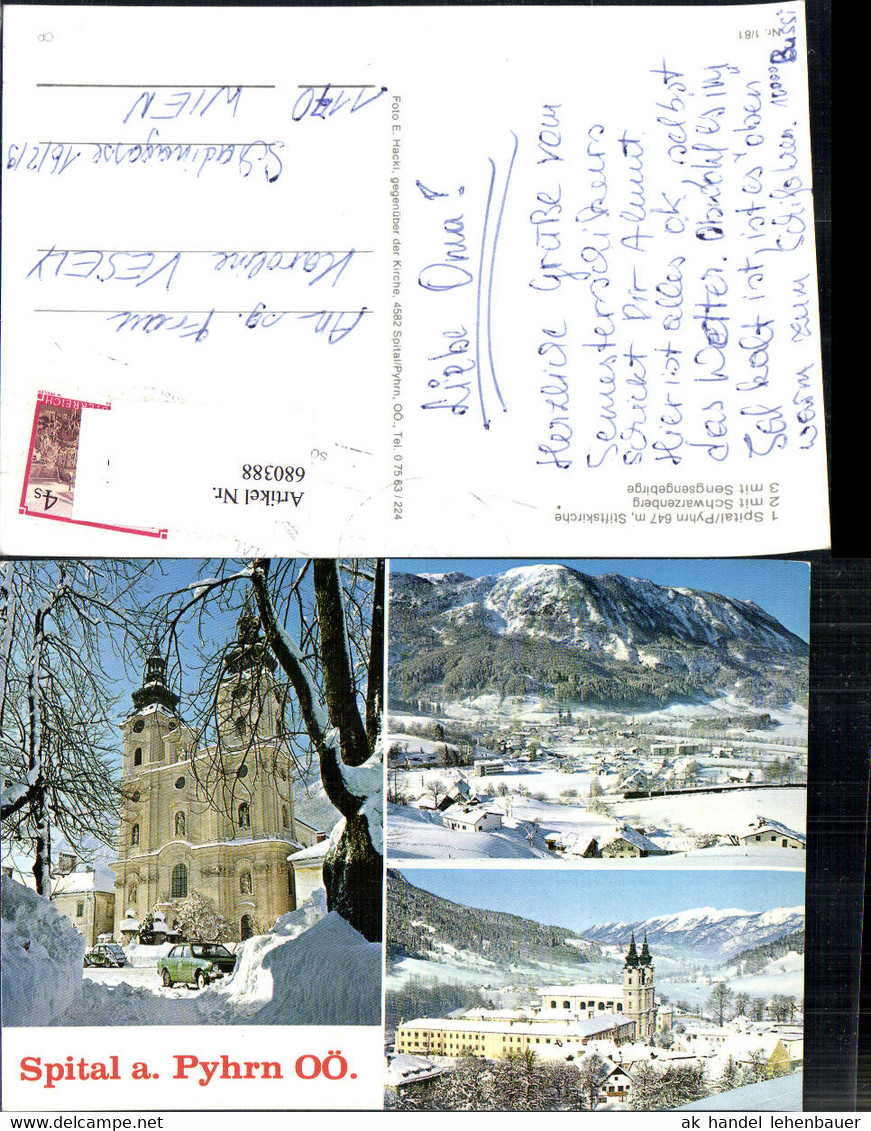 Nr. 1/81
CD
Liebe Oma!
Herzliche Grüße vom
Semesterschikurs
schickt Dir Almut
Hier ist alles ok, selbst
das Wetter. Obwohl es
kalt ist, ist es oben
warm zum Schifahren. 10000 Bussi
1 Spital/Pyhrn 647 m, Stiftskirche
2 mit Schwarzenberg
3 mit Sengsengebirge
Foto E. Hackl, gegenüber der Kirche, 4582 Spital/Pyhrn, OÖ., Tel. 0 75 63 / 224
ÖSTERREICH
4s
Artikel Nr.
680388
An sg. Frau
Karoline VESELY
16/2/9
1170 WIEN
Spital a. Pyhrn OÖ.
ak handel lehenbauer